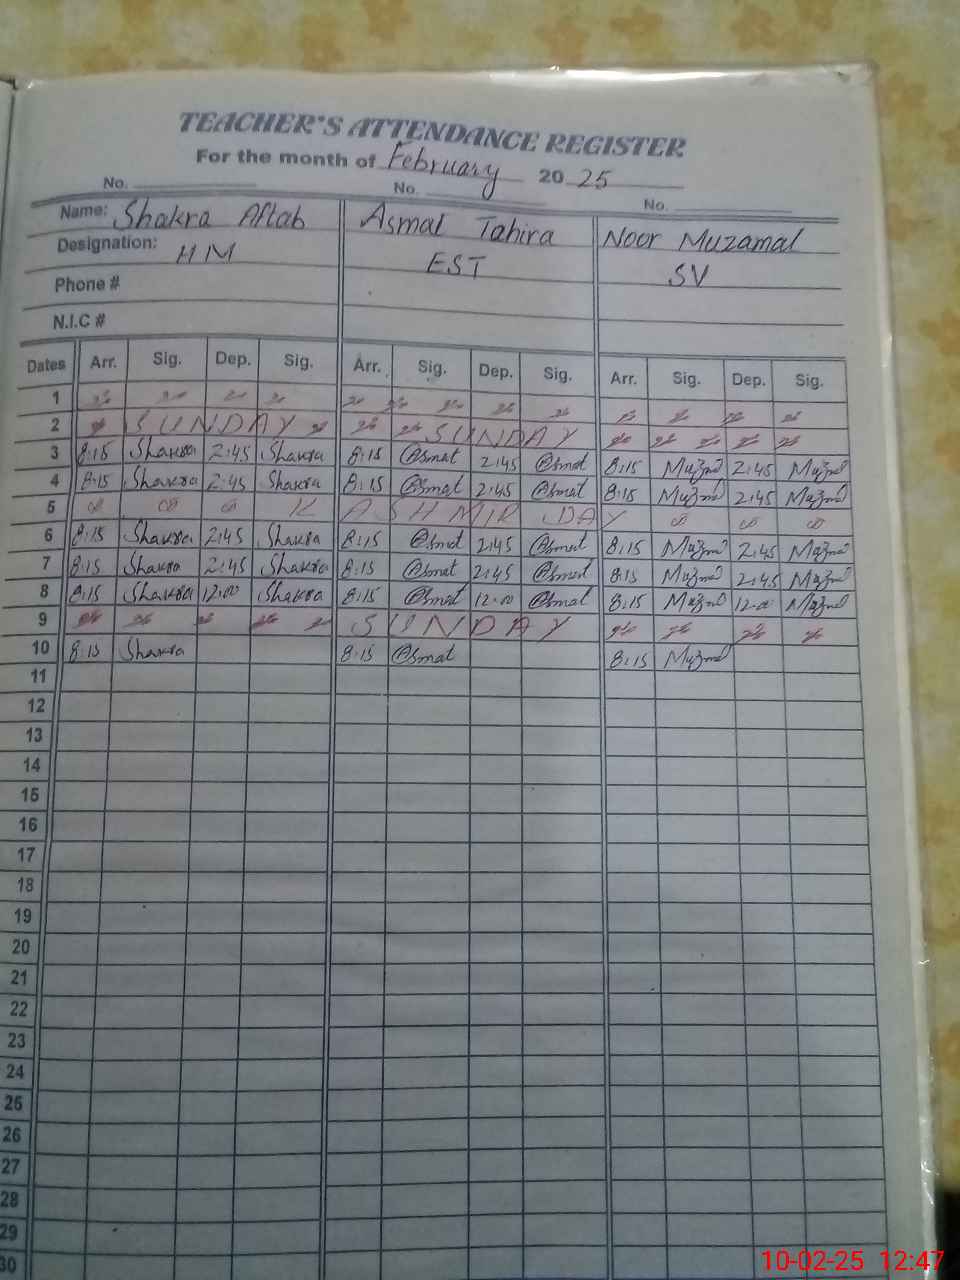 TEACHER'S ATTENDANCE REGISTER
For the month of February 2025
No. No. No.
Name: Shakra Aftab Asmal Tahira Noor Muzamal
Designation: HM EST SV
Phone #
N.I.C #
Dates Arr. Sig. Dep. Sig. Arr. Sig. Dep. Sig. Arr. Sig. Dep. Sig.
1
2 SUNDAY SUNDAY
3 8:15 Shakra 2:45 Shakra 8:15 @smat 2:45 @smat 8:15 2:45
4 8:15 Shakra 2:45 Shakra 8:15 @smat 2:45 @smat 8:15 2:45
5 KASHMIR DAY
6 8:15 Shakra 2:45 Shakra 8:15 @smat 2:45 @smat 8:15 2:45
7 8:15 Shakra 2:45 Shakra 8:15 @smat 2:45 @smat 8:15 2:45
8 8:15 Shakra 12:00 Shakra 8:15 @smat 12:00 @smat 8:15 12:00
9 SUNDAY
10 8:15 Shakra 8:15 @smat 8:15
11
12
13
14
15
16
17
18
19
20
21
22
23
24
25
26
27
28
29
30
10-02-25 12:47